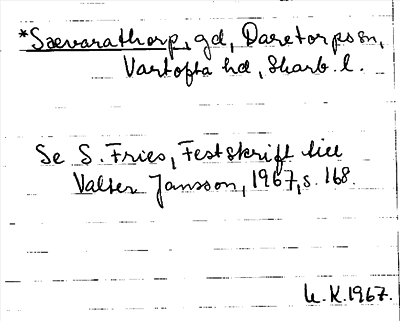 *Sævarathorp, gd, Daretorp sn,
Vartofta hd, Skarb. l.
Se S. Fries, Festskrift till
Valter Jansson, 1967, s. 168.
U.K. 1967.